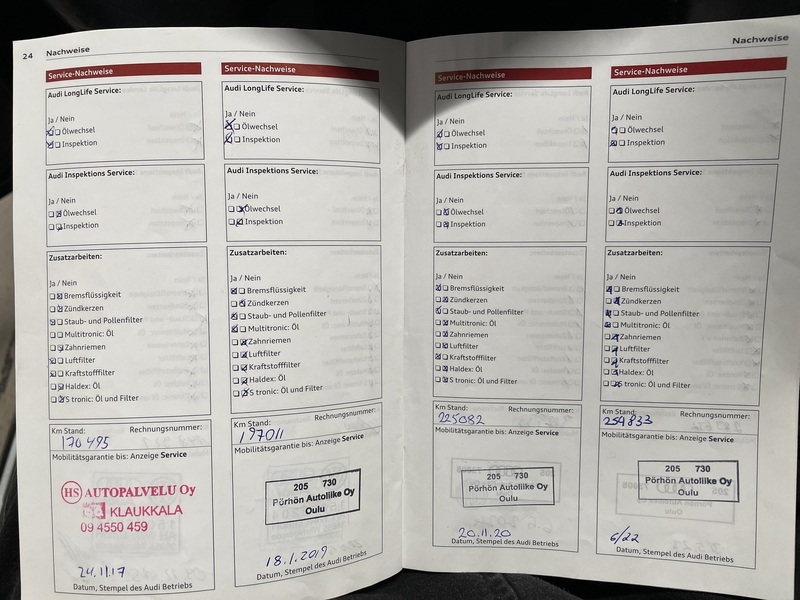 24
Nachweise
Service-Nachweise
Audi LongLife Service:
Ja / Nein
Ölwechsel
Inspektion
Audi Inspektions Service:
Ja / Nein
Ölwechsel
Inspektion
Zusatzarbeiten:
Ja / Nein
Bremsflüssigkeit
Zündkerzen
Staub- und Pollenfilter
Multitronic: Öl
Zahnriemen
Luftfilter
Kraftstofffilter
Haldex: Öl
S tronic: Öl und Filter
Km Stand:
Rechnungsnummer:
170 495
Mobilitätsgarantie bis: Anzeige Service
HS AUTOPALVELU Oy
KLAUKKALA
09 4550 459
24.11.17
Datum, Stempel des Audi Betriebs
Service-Nachweise
Audi LongLife Service:
Ja / Nein
Ölwechsel
Inspektion
Audi Inspektions Service:
Ja / Nein
Ölwechsel
Inspektion
Zusatzarbeiten:
Ja / Nein
Bremsflüssigkeit
Zündkerzen
Staub- und Pollenfilter
Multitronic: Öl
Zahnriemen
Luftfilter
Kraftstofffilter
Haldex: Öl
S tronic: Öl und Filter
Km Stand:
Rechnungsnummer:
197011
Mobilitätsgarantie bis: Anzeige Service
205 730
Pörhön Autoliike Oy
Oulu
18.1.2019
Datum, Stempel des Audi Betriebs
Nachweise
Service-Nachweise
Audi LongLife Service:
Ja / Nein
Ölwechsel
Inspektion
Audi Inspektions Service:
Ja / Nein
Ölwechsel
Inspektion
Zusatzarbeiten:
Ja / Nein
Bremsflüssigkeit
Zündkerzen
Staub- und Pollenfilter
Multitronic: Öl
Zahnriemen
Luftfilter
Kraftstofffilter
Haldex: Öl
S tronic: Öl und Filter
Km Stand:
Rechnungsnummer:
225082
Mobilitätsgarantie bis: Anzeige Service
205 730
Pörhön Autoliike Oy
Oulu
20.11.20
Datum, Stempel des Audi Betriebs
Service-Nachweise
Audi LongLife Service:
Ja / Nein
Ölwechsel
Inspektion
Audi Inspektions Service:
Ja / Nein
Ölwechsel
Inspektion
Zusatzarbeiten:
Ja / Nein
Bremsflüssigkeit
Zündkerzen
Staub- und Pollenfilter
Multitronic: Öl
Zahnriemen
Luftfilter
Kraftstofffilter
Haldex: Öl
S tronic: Öl und Filter
Km Stand:
Rechnungsnummer:
254833
Mobilitätsgarantie bis: Anzeige Service
205 730
Pörhön Autoliike Oy
Oulu
6/22
Datum, Stempel des Audi Betriebs